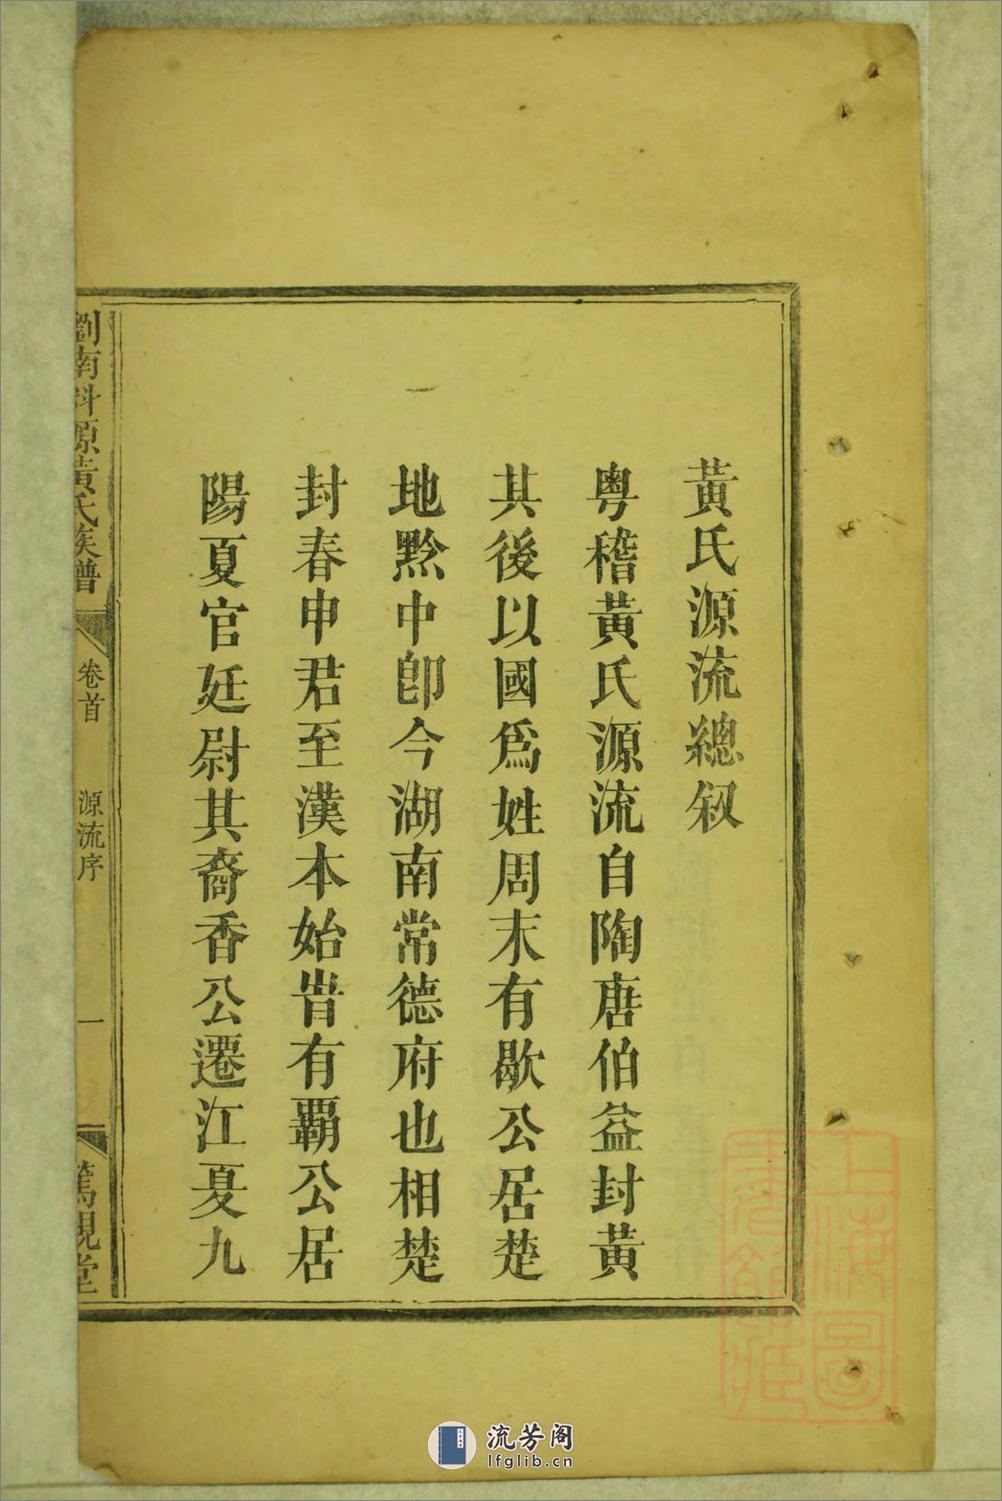 黃氏源流總叙
粵稽黃氏源流自陶唐伯益封黃
其後以國爲姓周末有歇公居楚
地黔中卽今湖南常德府也相楚
封春申君至漢本始旹有覇公居
陽夏官廷尉其裔香公遷江夏九
劉南科源黃氏族譜
卷首
源流序
一
篤親堂
上海圖書館藏
流芳阁
lfglib.cn